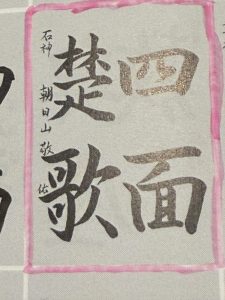 四面
楚歌
石神 朝日山 敬佑